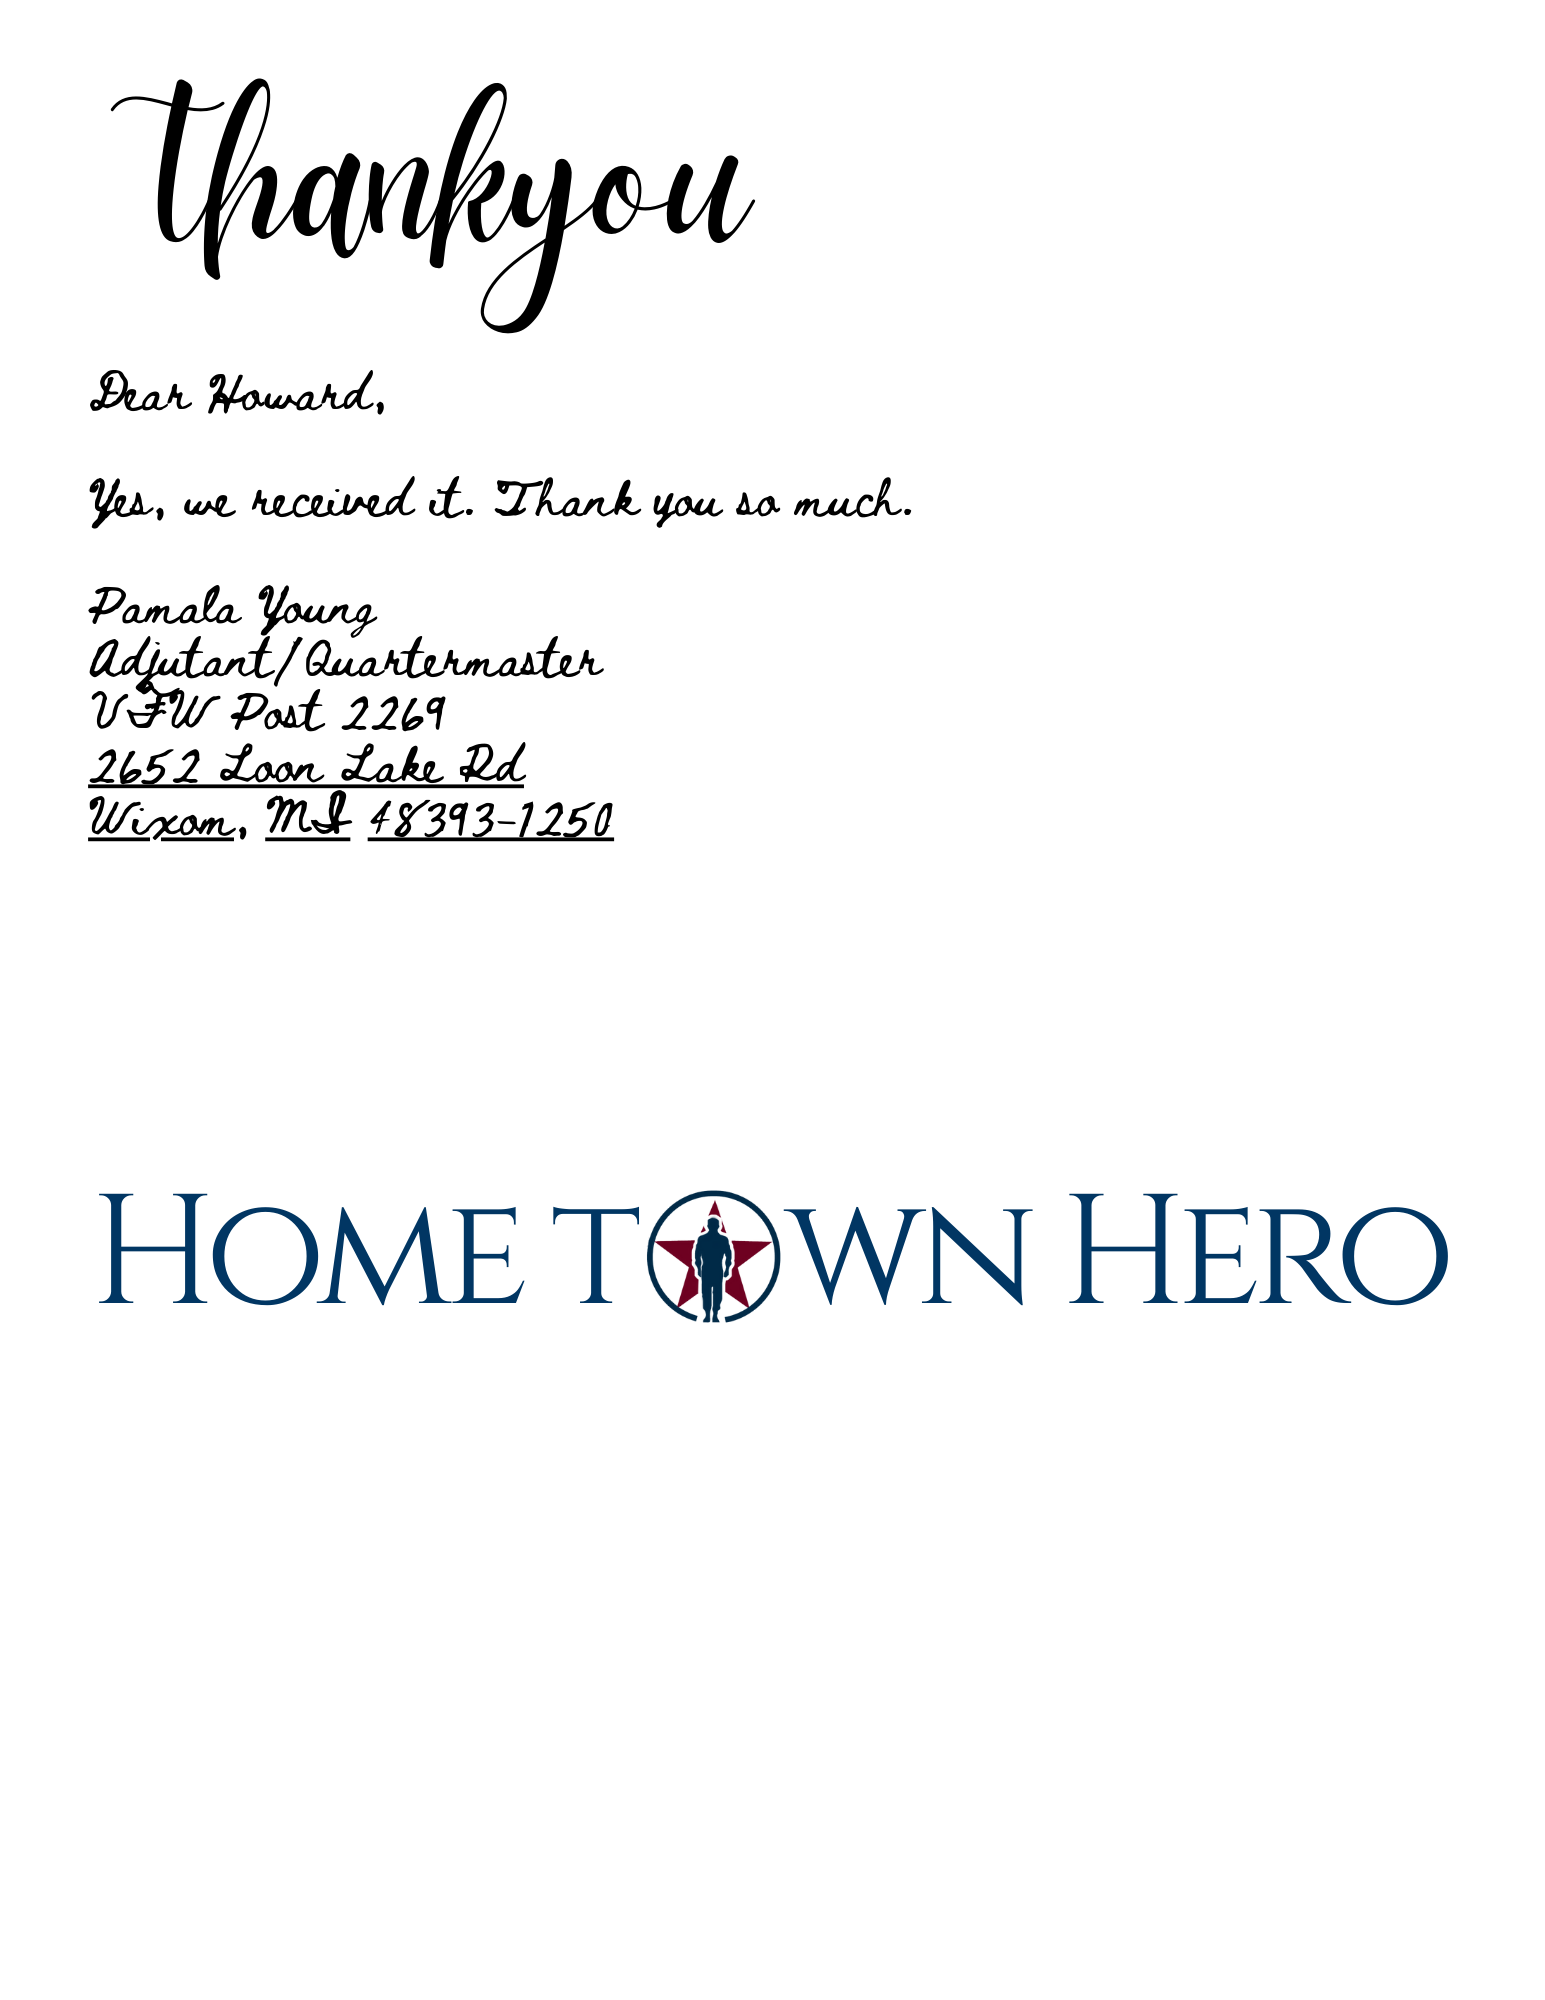 thankyou
Dear Howard,
Yes, we received it. Thank you so much.
Pamala Young
Adjutant/Quartermaster
VFW Post 2269
2652 Loon Lake Rd
Wixom, MI 48393-1250
HOME TOWN HERO